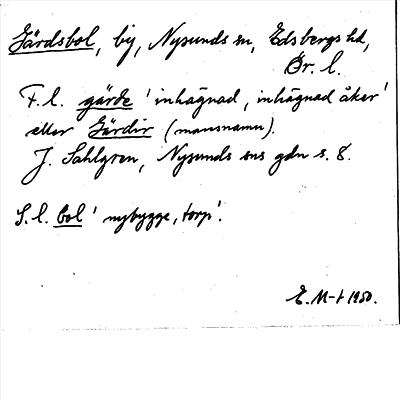 Gärdsbol, by, Nysunds sn, Edsbergs hd,
Ör. l.
F. l. gärde 'inhägnad, inhägnad åker'
eller Gärdir (mansnamn).
J. Sahlgren, Nysunds sns gdn s. 8.
S. l. bol 'nybygge, torp'.
E. M-t 1950.